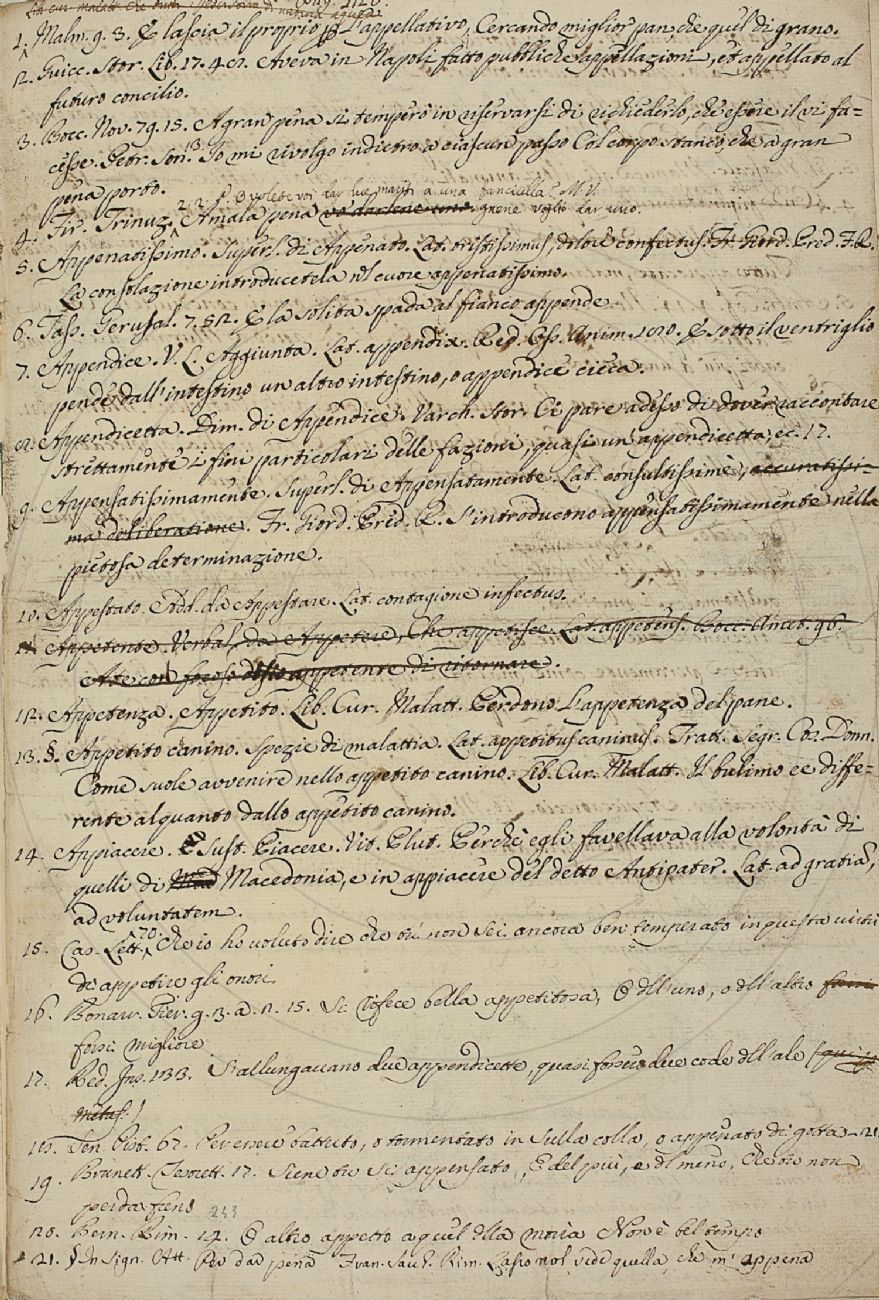 Lib. cur. malatt. che tutti di natura aguta pag. 212
1. Malm. 9. 3. E lascia il proprio p. l'appellativo, Cercando miglior pan, che quel di grano.
2. Guicc. Stor. Lib. 17. 402. Aveva in Napoli fatto pubbliche appellazioni, et appellato al
futuro concilio.
3. Bocc. Nov. 79. 15. A gran pena si temperò in riservarsi di richiederlo, che essere il vi fa=
cesse. Petr. Son. 13. Io mi rivolgo indietro a ciascun passo Col corpo stanco, che a gran
pena porto.
2. 2. E volete voi dar due mariti a una fanciulla? M. V.
4. Fir. Trinuz. A mala pena gnene voglio dar uno.
5. Appenatissimo. Superl. di Appenato. Lat. tristissimus, dolore confectus. Fr. Giord. Pred. R.
La consolazione introducetela nel cuore appenatissimo.
6. Tass. Gerusal. 7. 52. E la solita spada al fianco appende
7. Appendice. V. L. Aggiunta. Lat. appendix. Red. Oss. Anim. E sotto il ventriglio
pende dall'intestino un altro intestino, o appendice cieca.
8. Appendicetta. Dim. di Appendice. Varch. Stor. Ci pare adesso di dover raccontare
strettamente i fini particolari delle fazioni, quasi un'appendicetta, ec. 17.
9. Appensatissimamente. Superl. di Appensatamente. Lat. consultissimè, accuratissi=
ma deliberatione. Fr. Giord. Pred. R. S'introducono appensatissimamente nella
pietosa determinazione.
10. Appestato. Add. da Appestare. Lat. contagione infectus.
11. Appetente. Verbal. da Appetere, Che appetisce. Lat. appetens. Bocc. Amet. 96.
A te con focoso disio appetente di ritornare.
12. Appetenza. Appetito. Lib. Cur. Malatt. Perdono l'appetenza del pane.
13. §. Appetito canino. Spezie di malattia. Lat. appetitus caninus. Tratt. Segr. Cos. Donn.
Come suole avvenire nello appetito canino. Lib. Cur. Malatt. Il bulimo è e differ=
rente alquanto dallo appetito canino.
14. Appiacere. Sust. Piacere. Vit. Plut. Perchè egli favellava alla volontà di
quelli di Macedonia, e in appiacere del detto Antipater. Lat. ad gratiã,
ad voluntatem.
15. Cas. Lett. 70. Che io ho voluto dire che tu non sei ancora ben temperato in questa virtù
di appetire gli onori
16. Bonarr. Fier. g. 3. a. 2. 15. Si rifece bella appetitosa, E dell'uno, o dell'altro
forsi migliore
17. Red. Ins. 133. S'allungavano due appendicette, quasi fossero due code dell'ale
18. Sen. Pist. 67. Per essere battuto, o tormentato in sulla colla, o appenato di gotta
19. Brunett. Tesorett. 17. Siene tu sì appensato, E del più, e del meno, Che tu non
perda fieno
243
20. Bern. Rim. 12. E altro appetto a quel della moria Non è bel tempo
21. § In sign. Att. Per dar pena Fran. Sacch. Rim. Lasso nol vede quella, che m'appena